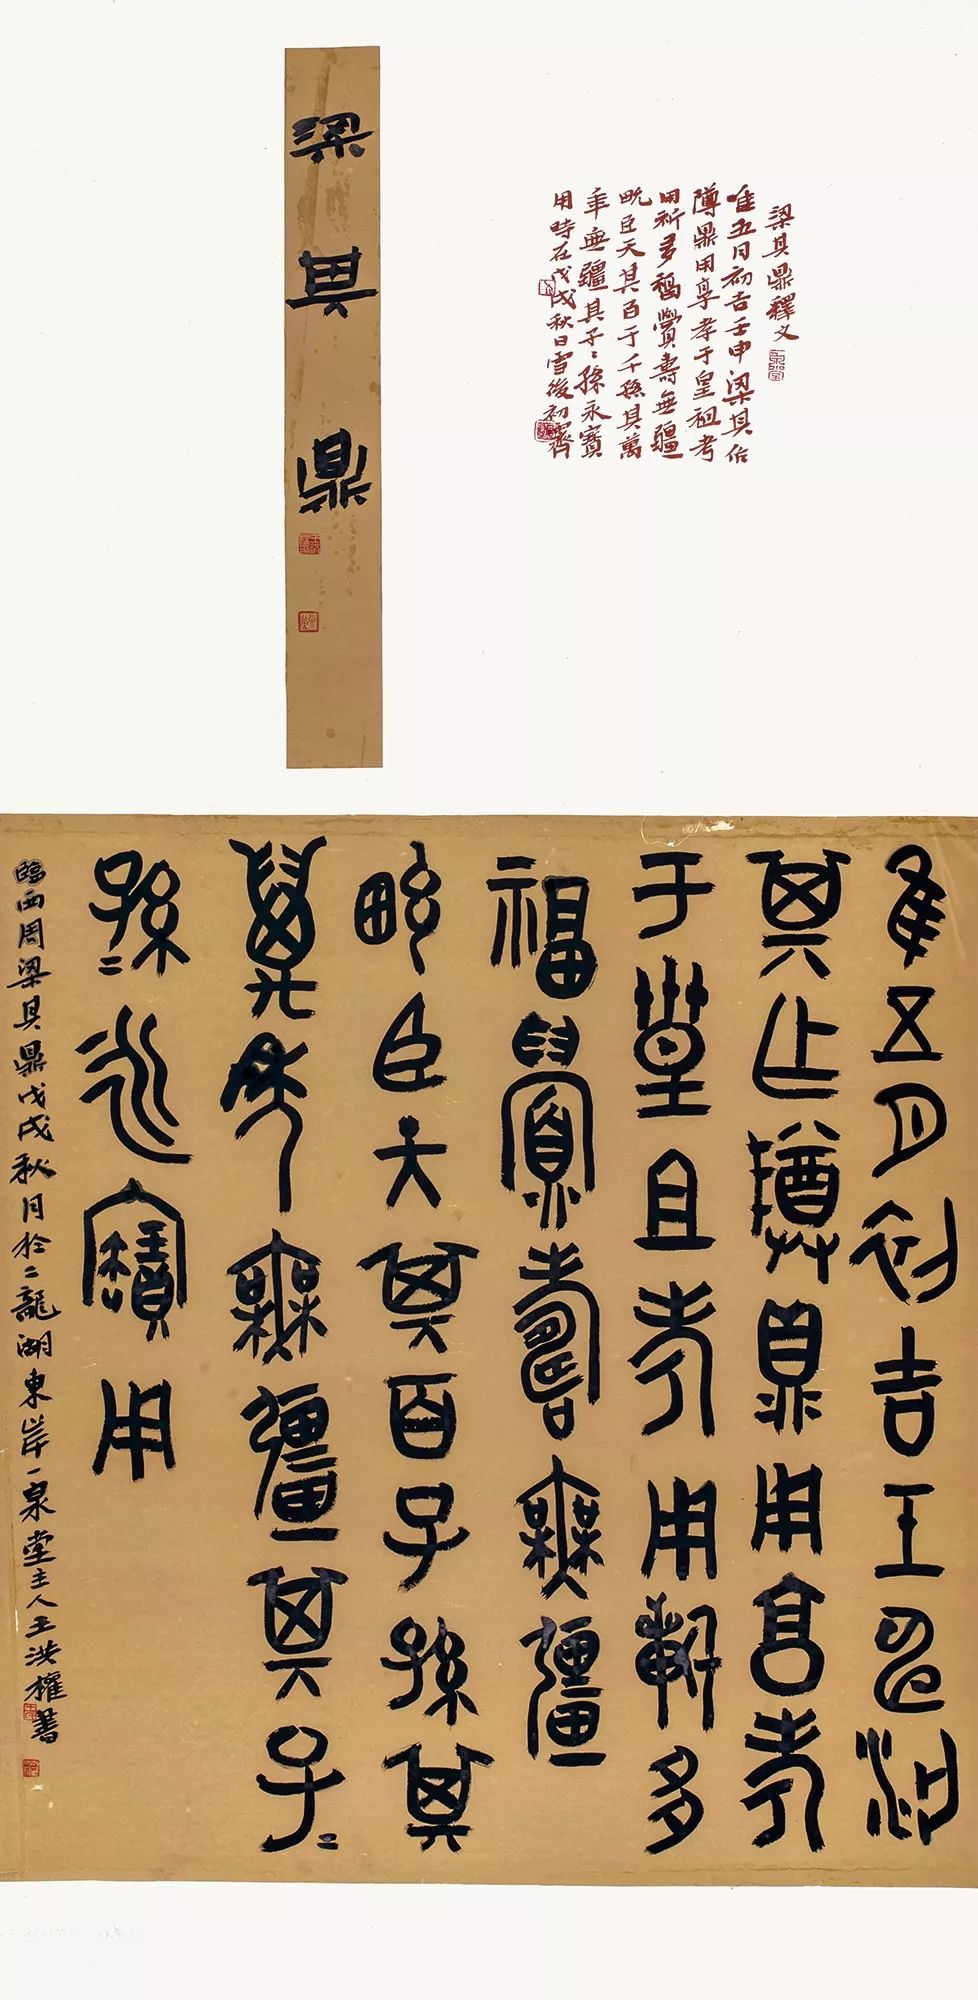 梁其鼎
梁其鼎釋文
唯五月初吉壬申梁其作
障鼎用享孝于皇祖考
用祈多福眉壽無疆
畯臣天其百子千孫其萬
年無疆其子〻孫永寶
用時在戊戌秋日雪後初霽
隹五月初吉壬申梁
其乍障鼎用享考
于皇且考用祈多
福眉壽無疆
畯臣天其百子孫其
萬年無疆其子〻
孫〻永寶用
臨西周梁其鼎戊戌秋月於二龍湖東岸一泉堂主人王洪權書